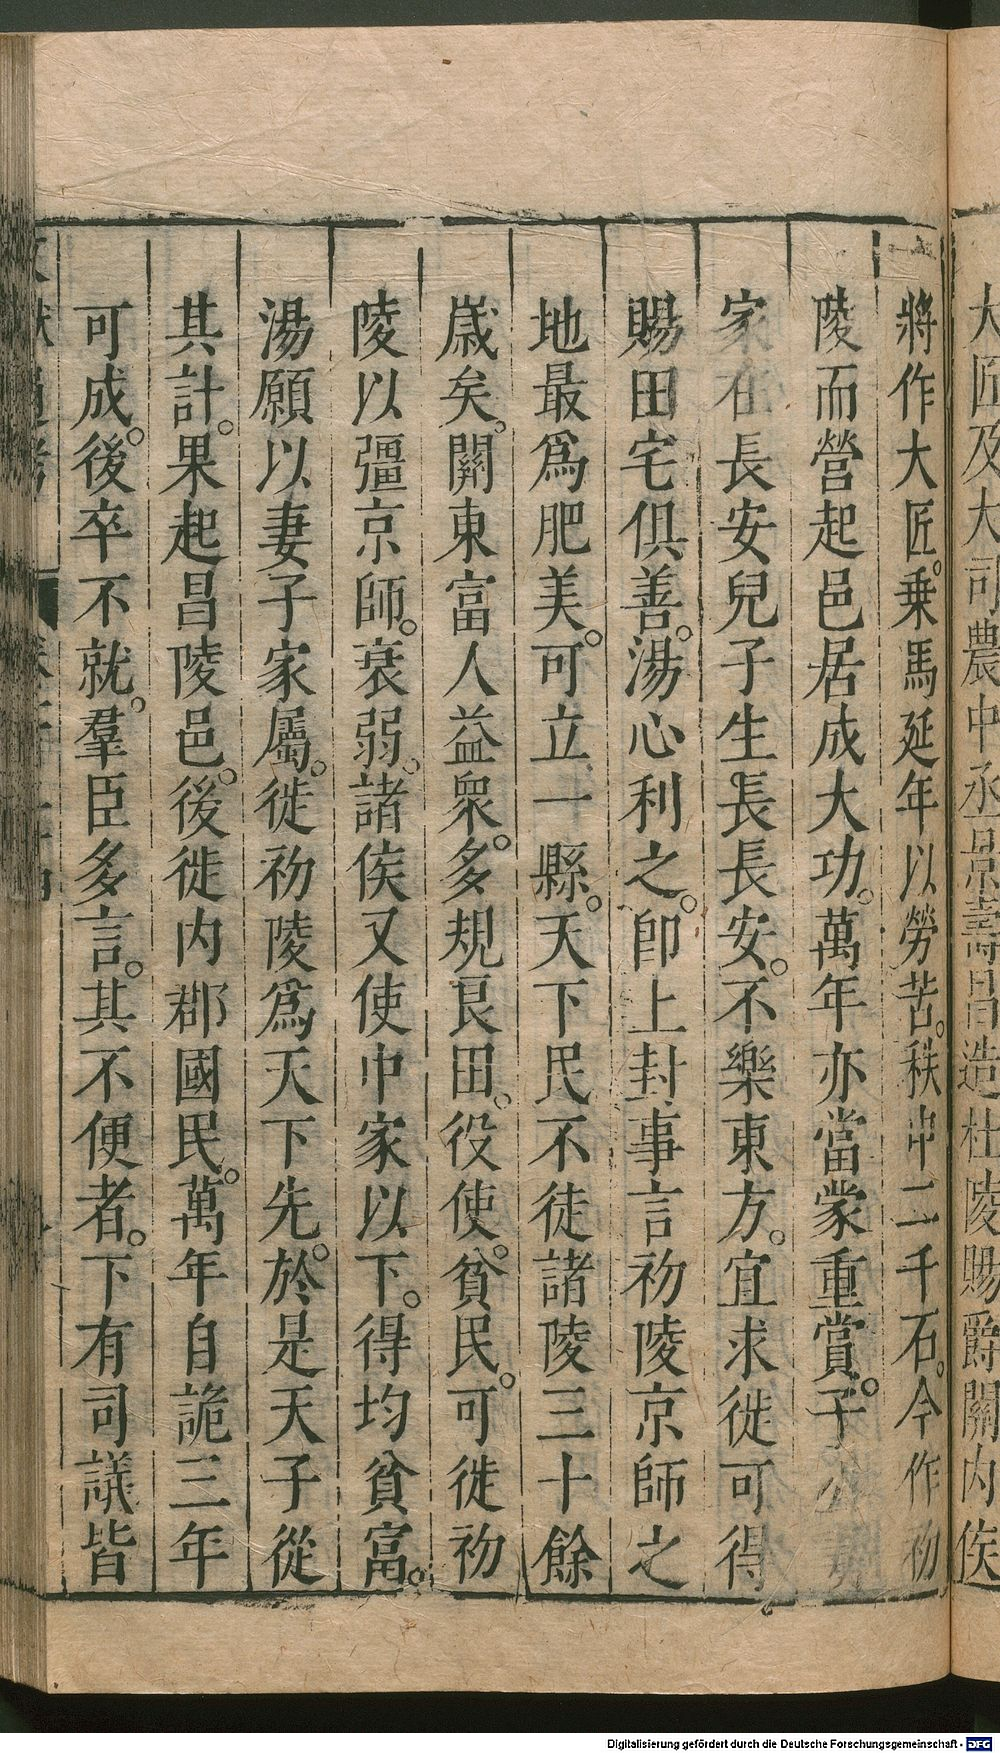 大匠及大司農中丞耿壽昌造杜陵賜爵關内侯
將作大匠乗馬延年以勞苦秩中二千石今作初
陵而營起邑居成大功萬年亦當蒙重賞子公妻
家在長安兒子生長長安不樂東方宜求徙可得
賜田宅俱善湯心利之卽上封事言初陵京師之
地最爲肥美可立一縣天下民不徒諸陵三十餘
歲矣關東富人益衆多規良田役使貧民可徙初
陵以彊京師衰弱諸侯又使中家以下得均貧富
湯願以妻子家屬徙初陵爲天下先於是天子從
其計果起昌陵邑後徙内郡國民萬年自詭三年
可成後卒不就羣臣多言其不便者下有司議皆
文獻通考
Digitalisierung gefördert durch die Deutsche Forschungsgemeinschaft - DFG